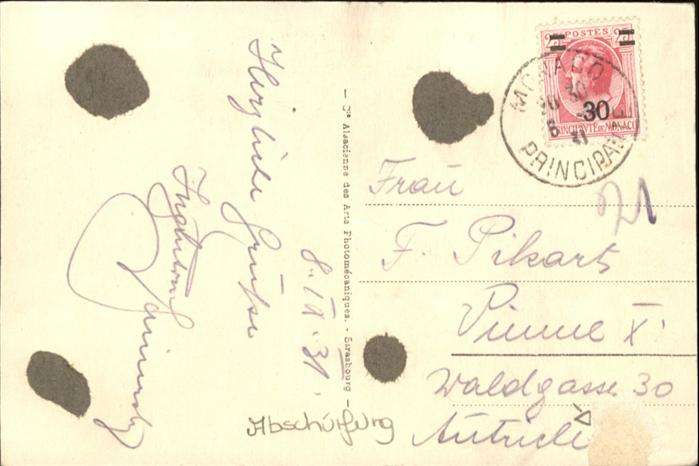 Herzliche Grüße
8. IX. 31.
- Cie Alsacienne des Arts Photomécaniques. - Strasbourg -
POSTES
30
PRINCIPAUTÉ DE MONACO
MONACO
PRINCIPAUTÉ
Frau
F. Pikart
Vienne X.
Waldgasse 30
Autriche
Abschürfung